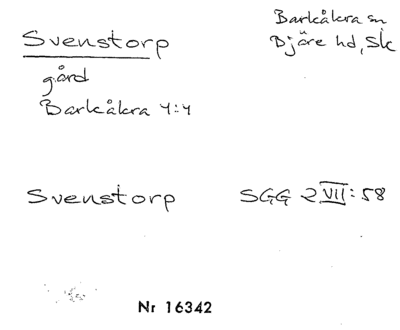 Svenstorp
Barkåkra sn
Bjäre hd, Sk
gård
Barkåkra 4:4
Svenstorp
SGG 2 VII:58
Nr 16342